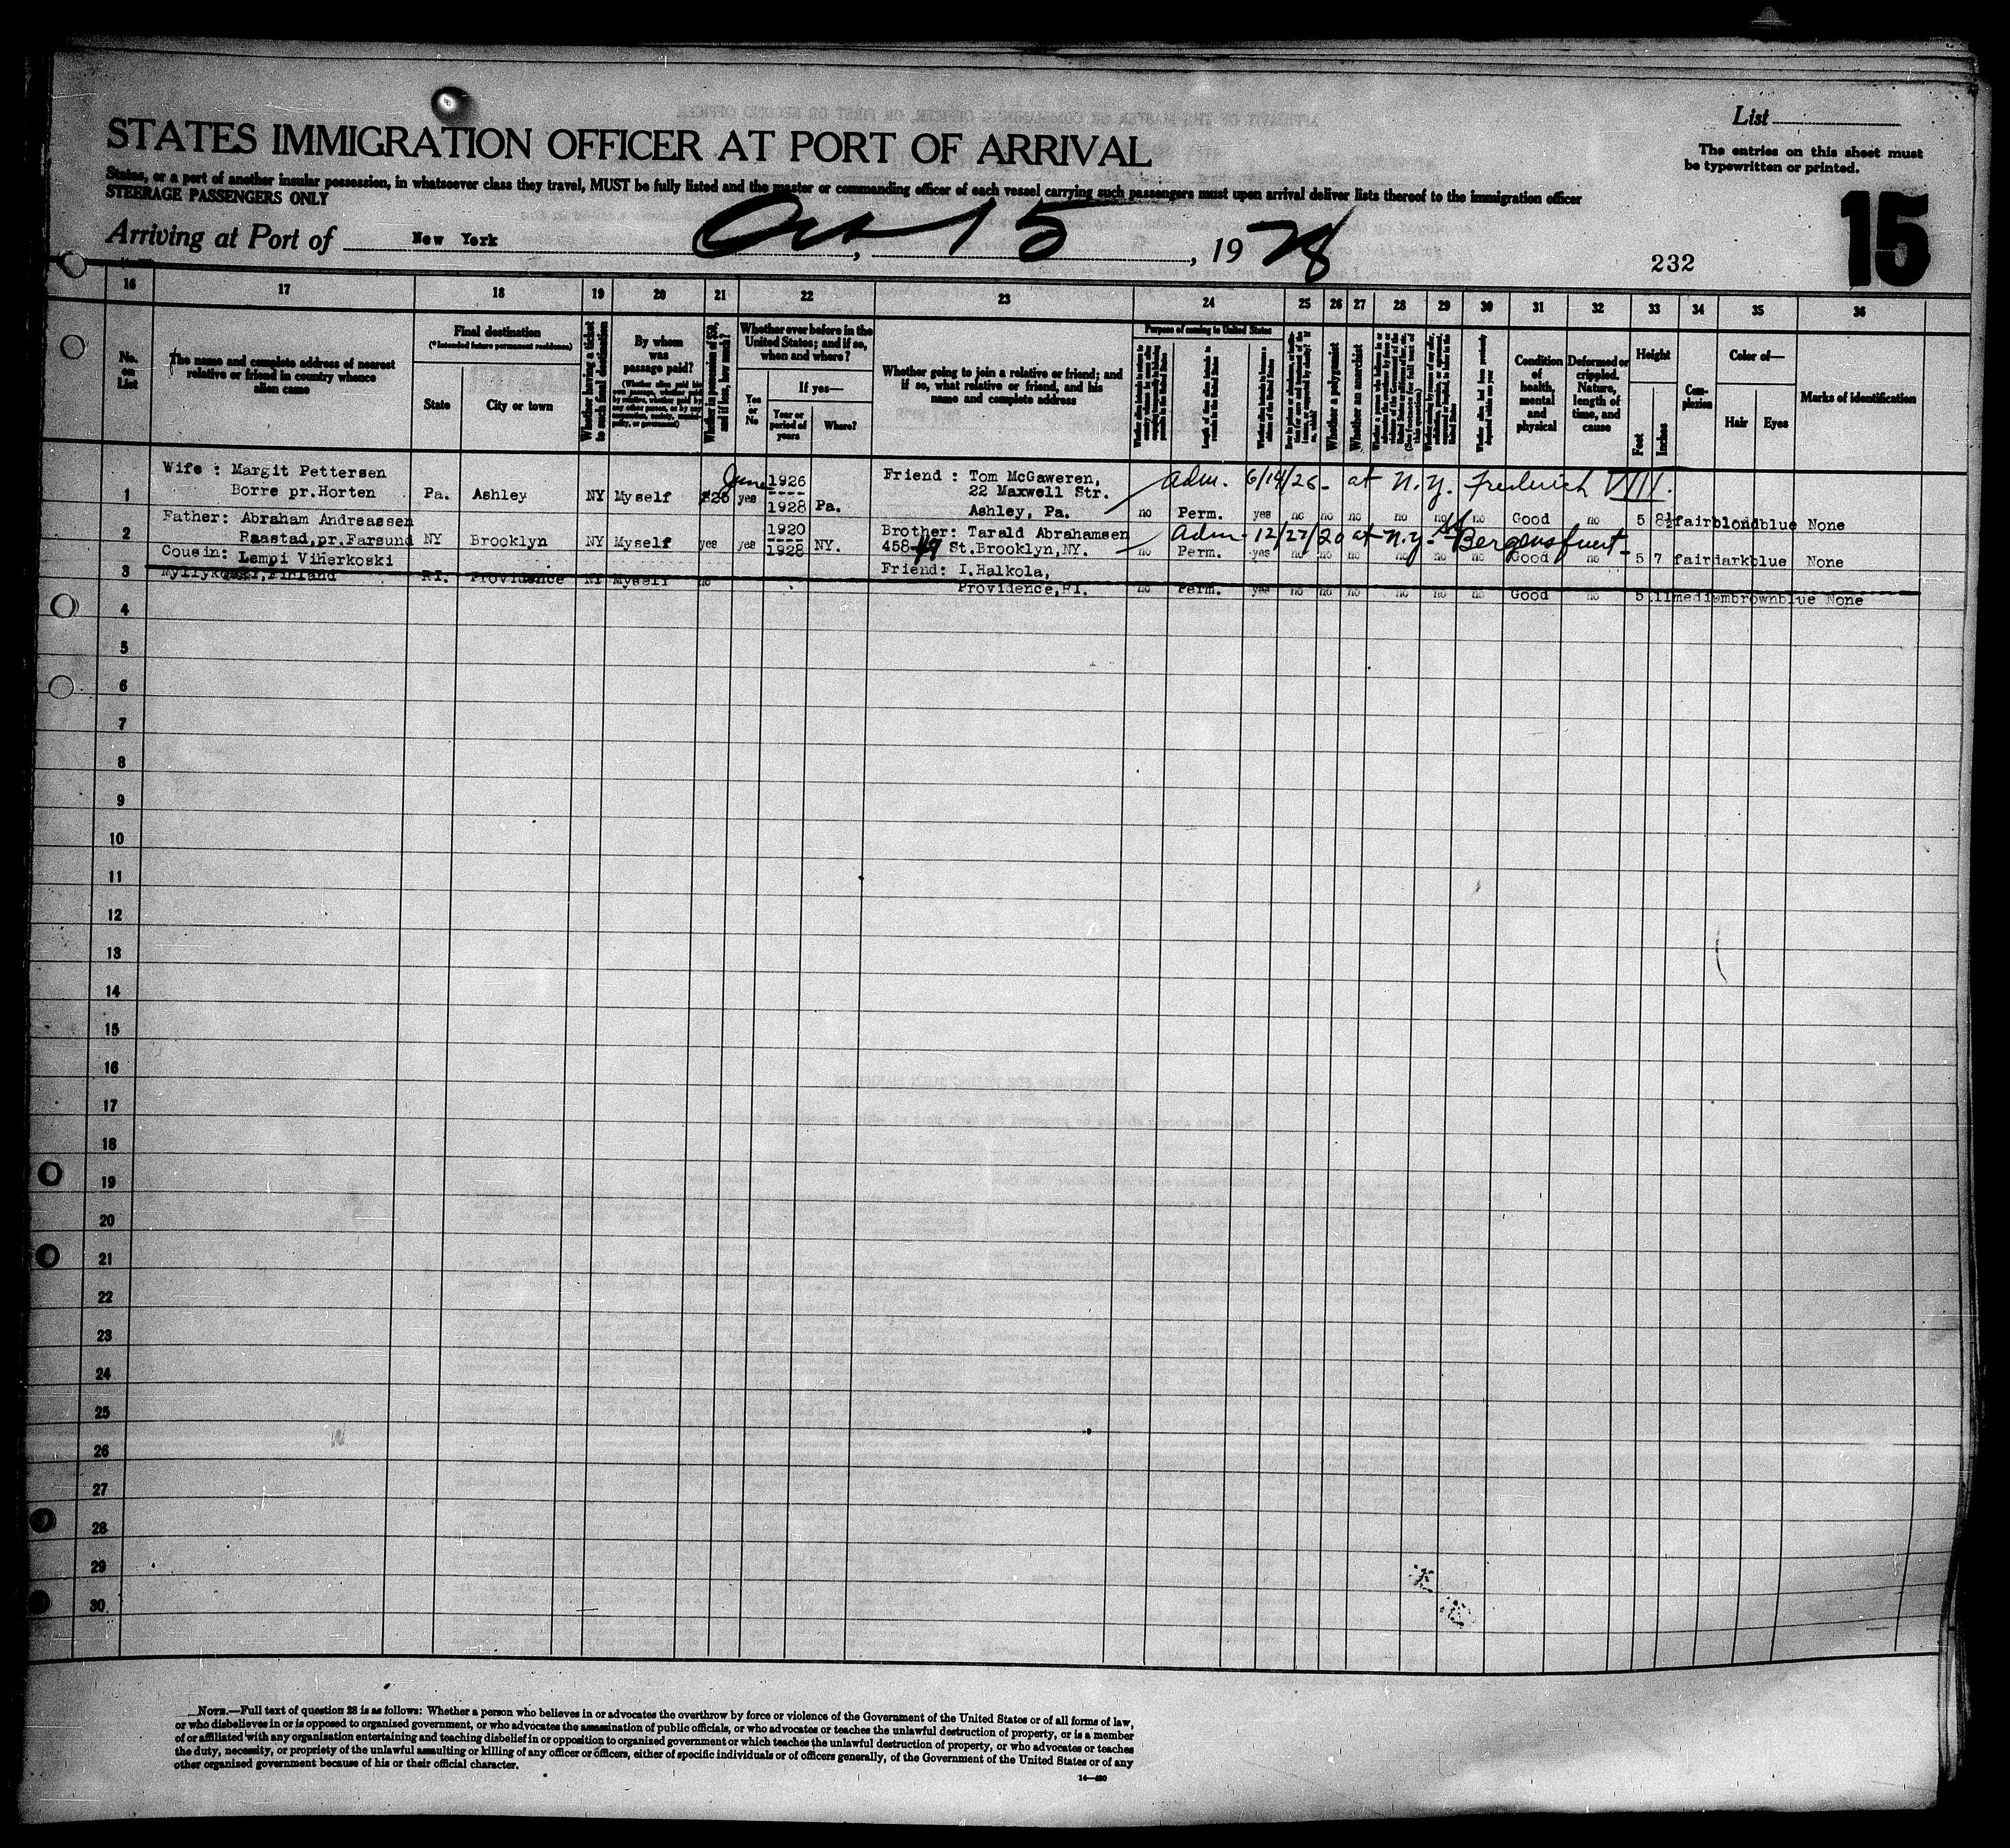 List
The entries on this sheet must
be typewritten or printed.
STATES IMMIGRATION OFFICER AT PORT OF ARRIVAL
States, or a part of another insular possession, in whatsoever class they travel, MUST be fully listed and the master or commanding officer of each vessel carrying such passengers must upon arrival deliver lists thereof to the immigration officer
STEERAGE PASSENGERS ONLY
15
Arriving at Port of New York, Oct 15, 1928
232
16 17 18 19 20 21 22 23 24 25 26 27 28 29 30 31 32 33 34 35 36
No. on List
The name and complete address of nearest relative or friend in country whence alien came
Final destination
(*Intended future permanent residence)
State
City or town
Whether having a ticket to such final destination
By whom was passage paid?
Whether in possession of $50, and if less, how much?
Whether ever before in the United States; and if so, when and where?
Yes or No
If yes—
Year or period of years
Where?
Whether going to join a relative or friend; and if so, what relative or friend, and his name and complete address
Purpose of coming to United States
Whether a polygamist
Whether an anarchist
Condition of health, mental and physical
Deformed or crippled. Nature, length of time, and cause
Height
Feet
Inches
Complexion
Color of—
Hair
Eyes
Marks of identification
1 Wife : Margit Pettersen
Borre pr.Horten
Pa. Ashley NY Myself $25 yes June 1926
----
1928 Pa.
Friend : Tom McGaweren,
22 Maxwell Str.
Ashley, Pa.
adm. 6/14/26 - at N.Y. Frederich VIII.
no Perm. yes no no no no no no Good no 5 8½ fair blond blue None
2 Father: Abraham Andreassen
Raastad,pr.Farsund
NY Brooklyn NY Myself yes yes 1920
----
1928 NY.
Brother: Tarald Abrahamsen
458-49 St.Brooklyn,NY.
Adm - 12/27/20 at N.Y. SS Bergensfjord
no Perm. yes no no no no no no Good no 5 7 fair dark blue None
3 Cousin: Lempi Viherkoski
Myllykoski,Finland
RI. Providence NY Myself no
Friend: I.Halkola,
Providence,RI.
no Perm. yes no no no no no no Good no 5 11 medium brown blue None
4
5
6
7
8
9
10
11
12
13
14
15
16
17
18
19
20
21
22
23
24
25
26
27
28
29
30
NOTE.—Full text of question 28 is as follows: Whether a person who believes in or advocates the overthrow by force or violence of the Government of the United States or of all forms of law,
or who disbelieves in or is opposed to organized government, or who advocates the assassination of public officials, or who advocates or teaches the unlawful destruction of property, or is a member
of or affiliated with any organization entertaining and teaching disbelief in or opposition to organized government or which teaches the unlawful destruction of property, or who advocates or teaches
the duty, necessity, or propriety of the unlawful assaulting or killing of any officer or officers, either of specific individuals or of officers generally, of the Government of the United States or of any
other organized government because of his or their official character.
14—480